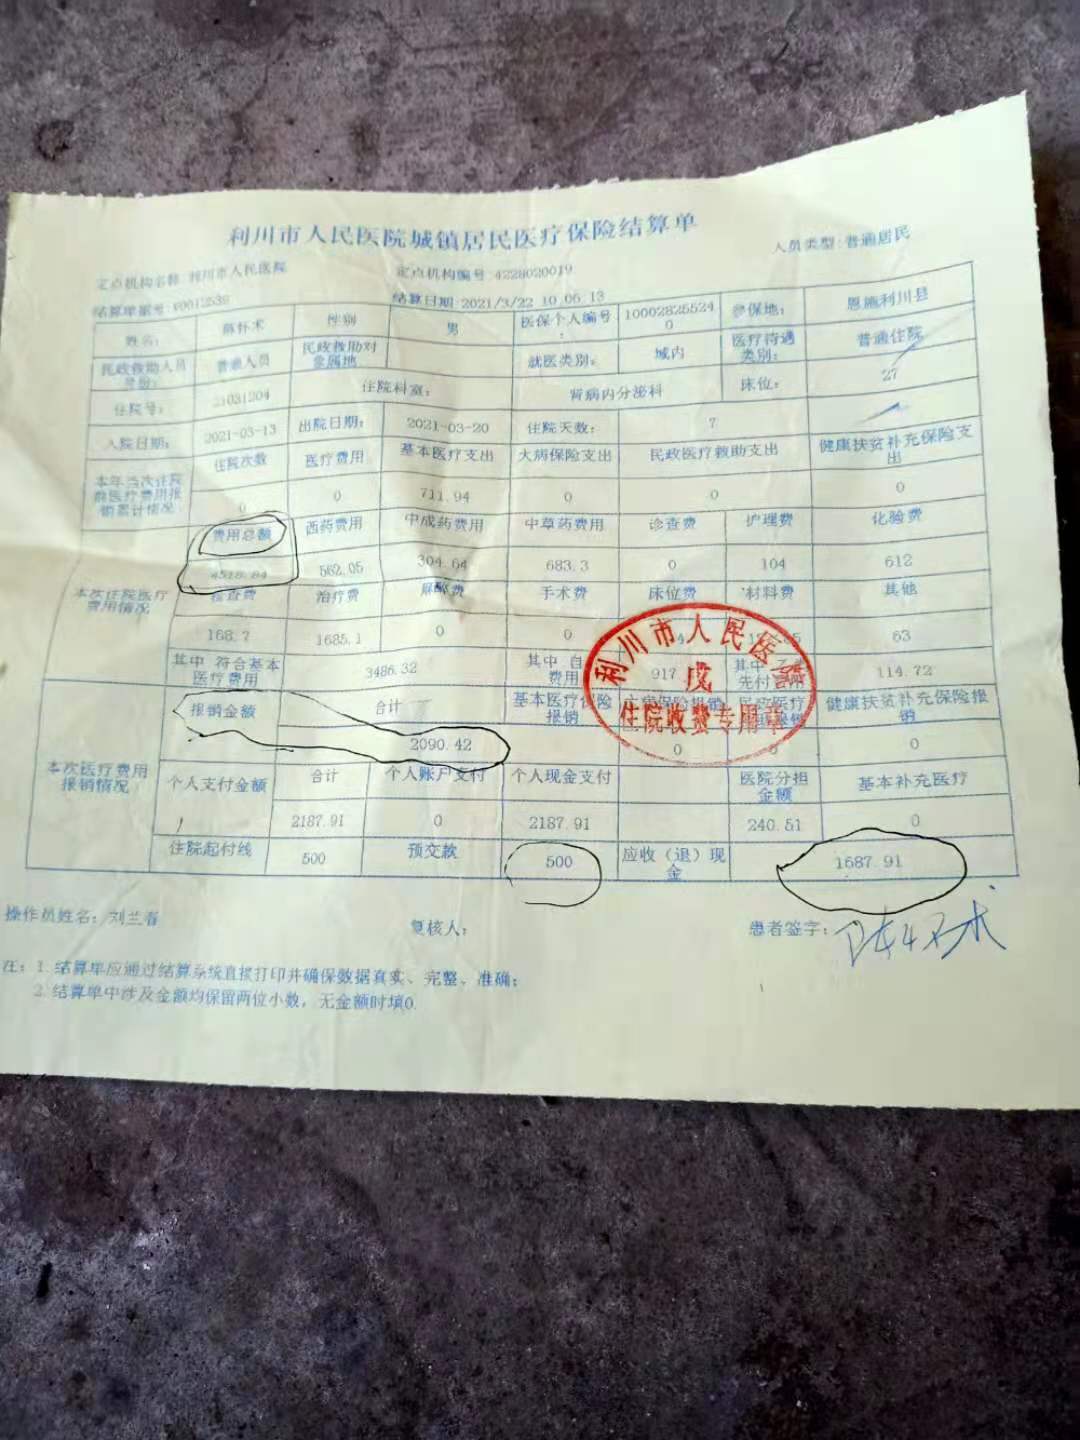 利川市人民医院城镇居民医疗保险结算单
人员类型:普通居民
定点机构名称 利川市人民医院 定点机构编号:4228020019
结算单据号: 结算日期:2021/3/22 10:06:13
姓名: 怀术 性别 男 医保个人编号: 10002825524 0 参保地: 恩施利川县
民政救助人员身份: 普通人员 民政救助对象属地 就医类别: 域内 医疗待遇类别: 普通住院
住院号: 21031204 住院科室: 肾病内分泌科 床位: 27
入院日期: 2021-03-13 出院日期: 2021-03-20 住院天数: 7
本年当次住院前医疗费用报销累计情况: 住院次数 医疗费用 基本医疗支出 大病保险支出 民政医疗救助支出 健康扶贫补充保险支出
0 0 711.94 0 0 0
本次住院医疗费用情况 费用总额 西药费用 中成药费用 中草药费用 诊查费 护理费 化验费
4518.84 562.05 304.64 683.3 0 104 612
检查费 治疗费 麻醉费 手术费 床位费 材料费 其他
168.7 1685.1 0 0 63
其中 符合基本医疗费用 3486.32 其中 自费用 917. 其中 先付费用 114.72
本次医疗费用报销情况 报销金额 合计 基本医疗保险报销 大病保险报销 民政医疗报销 健康扶贫补充保险报销
2090.42 0 0 0
个人支付金额 合计 个人账户支付 个人现金支付 医院分担金额 基本补充医疗
2187.91 0 2187.91 240.51 0
住院起付线 500 预交款 500 应收（退）现金 1687.91
利川市人民医院
戊
住院收费专用章
操作员姓名: 刘兰香 复核人: 患者签字:
注: 1.结算单应通过结算系统直接打印并确保数据真实、完整、准确;
2.结算单中涉及金额均保留两位小数，无金额时填0.